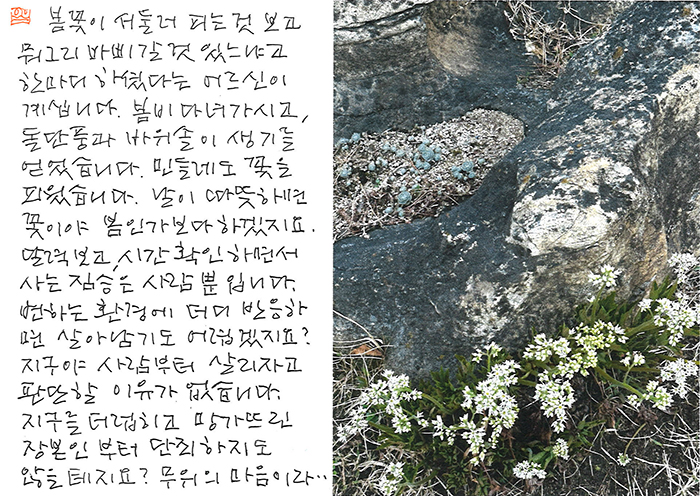 봄꽃이 서둘러 피는것 보고
뭐그리 바삐갈 것 있느냐고
한마디 하셨다는 어르신이
계십니다. 봄비 다녀가시고,
돌단풍과 바위솔이 생기를
얻었습니다. 민들레도 꽃을
피웠습니다. 날이 따뜻하면
꽃이야 봄인가보다 하겠지요.
달력보고, 시간 확인 하면서
사는 짐승은 사람 뿐 입니다.
변하는 환경에 더디 반응하
면 살아남기도 어렵겠지요?
지구야 사람부터 살리자고
판단할 이유가 없습니다.
지구를 더럽히고 망가뜨린
장본인 부터 단죄하지도
않을 테지요? 무위의 마음이라··